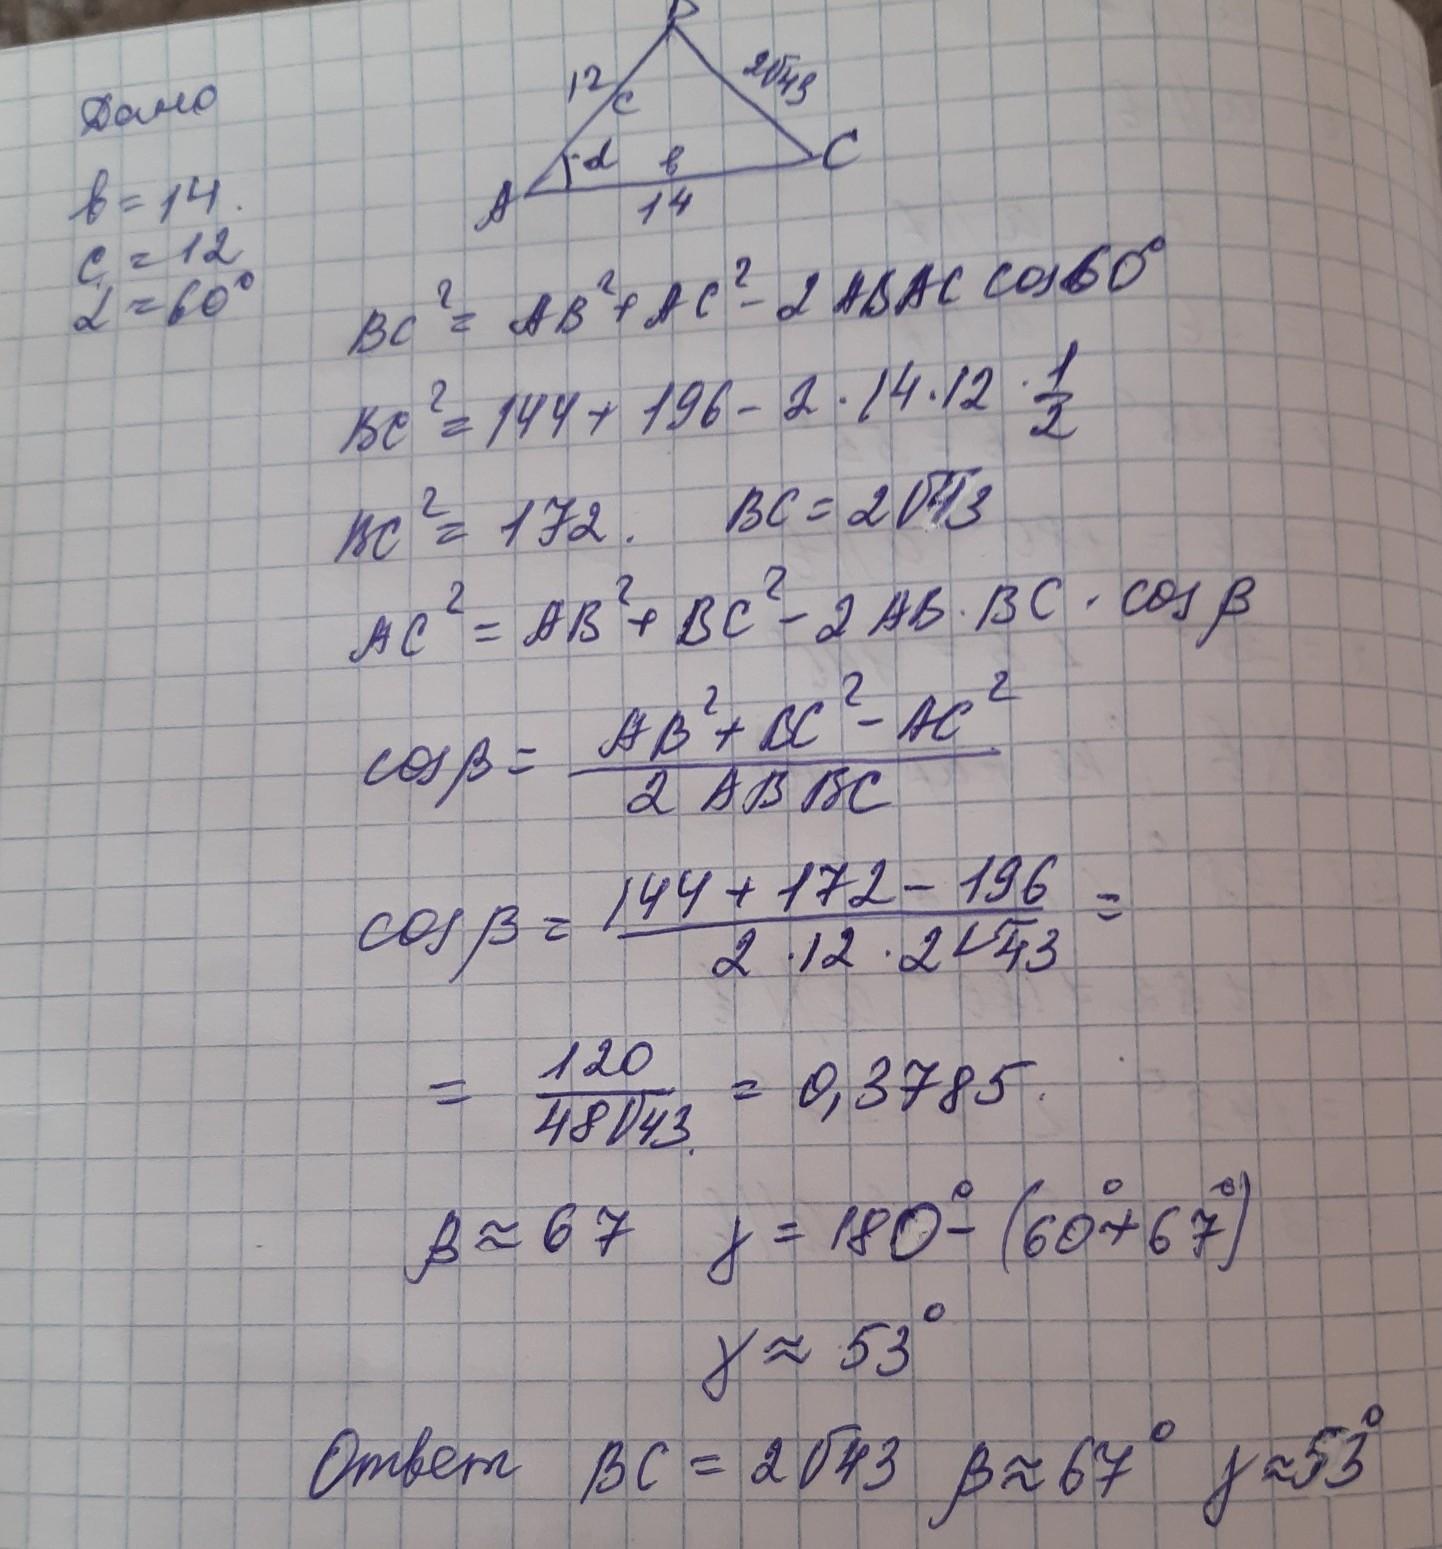 Дано
b = 14.
c = 12
α = 60°
B
12
c
2√43
α
b
A
14
C
BC² = AB² + AC² - 2 AB AC cos 60°
BC² = 144 + 196 - 2 · 14 · 12 · 1/2
BC² = 172. BC = 2√43
AC² = AB² + BC² - 2 AB · BC · cos β
cos β = (AB² + BC² - AC²) / (2 AB BC)
cos β = (144 + 172 - 196) / (2 · 12 · 2√43) =
= 120 / 48√43 = 0,3785.
β ≈ 67 γ = 180° - (60° + 67°)
γ ≈ 53°
Ответ BC = 2√43 β ≈ 67° γ ≈ 53°